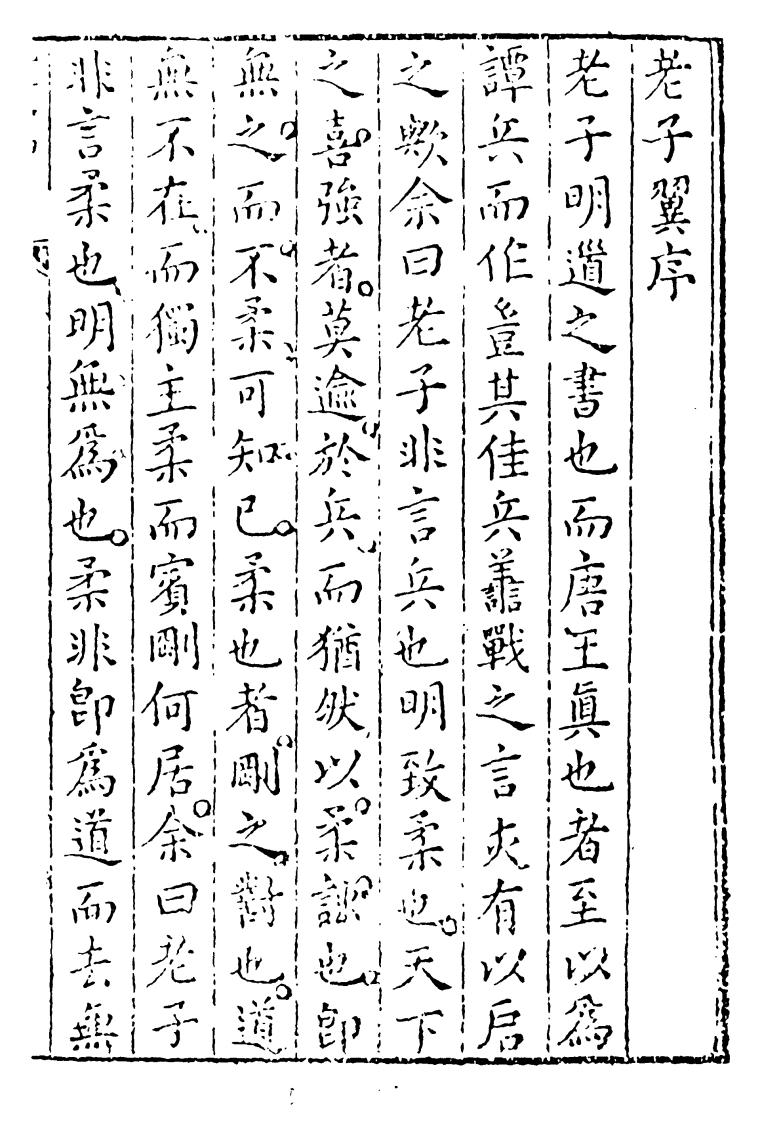 老子翼序
老子明道之書也而唐王眞也者至以爲
譚兵而作豈其佳兵善戰之言亦有以启
之歟余曰老子非言兵也明致柔也天下
之喜強者莫逾於兵而猶然以柔訟也即
無之而不柔可知已柔也者剛之對也道
無不在而獨主柔而賓剛何居余曰老子
非言柔也明無爲也柔非即爲道而去無